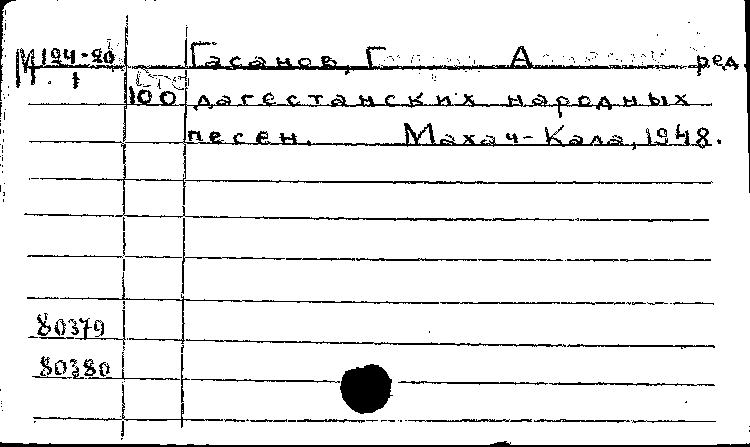 М 124-20 Гасанов, Г А ред.
1 Сто
100 дагестанских народных
песен. Махач-Кала, 1948.
80379
80380